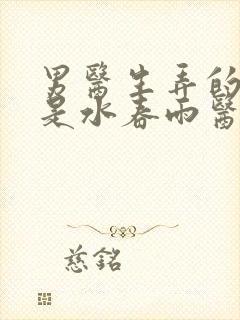 男醫生弄的
是水春雨醫
慈銘